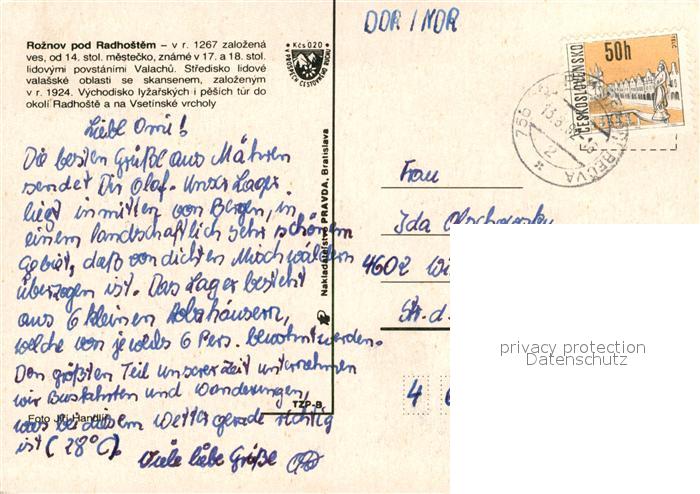 Rožnov pod Radhoštěm – v r. 1267 založená
ves, od 14. stol. městečko, známé v 17. a 18. stol.
lidovými povstáními Valachů. Středisko lidové
valašské oblasti se skansenem, založeným
v r. 1924. Východisko lyžařských i pěších túr do
okolí Radhoště a na Vsetínské vrcholy
Kčs 0,20
V PROSPĚCH ČESTOVNÉHO RUCHU
DDR / NDR
50h
ČESKOSLOVENSKO
756
2
BEČVA
Liebe Omi!
Die besten Grüße aus Mähren
sendet Dir Olaf. Unser Lager
liegt inmitten von Bergen, in
einem landschaftlich sehr schönem
Gebiet, daß von dichten Mischwäldern
überzogen ist. Das Lager besteht
aus 6 kleinen Holzhäusern,
welche von jeweils 6 Pers. bewohnt werden.
Den größten Teil unserer Zeit unternehmen
wir Busfahrten und Wanderungen,
was bei diesem Wetter gerade richtig
ist (28°C).
Viele liebe Grüße
Foto Jiří Handlíř
TZP-B
Nakladatelstvo PRAVDA, Bratislava
Frau
Ida Olschowsky
4602 Wi
Str. d.
4 6
privacy protection
Datenschutz